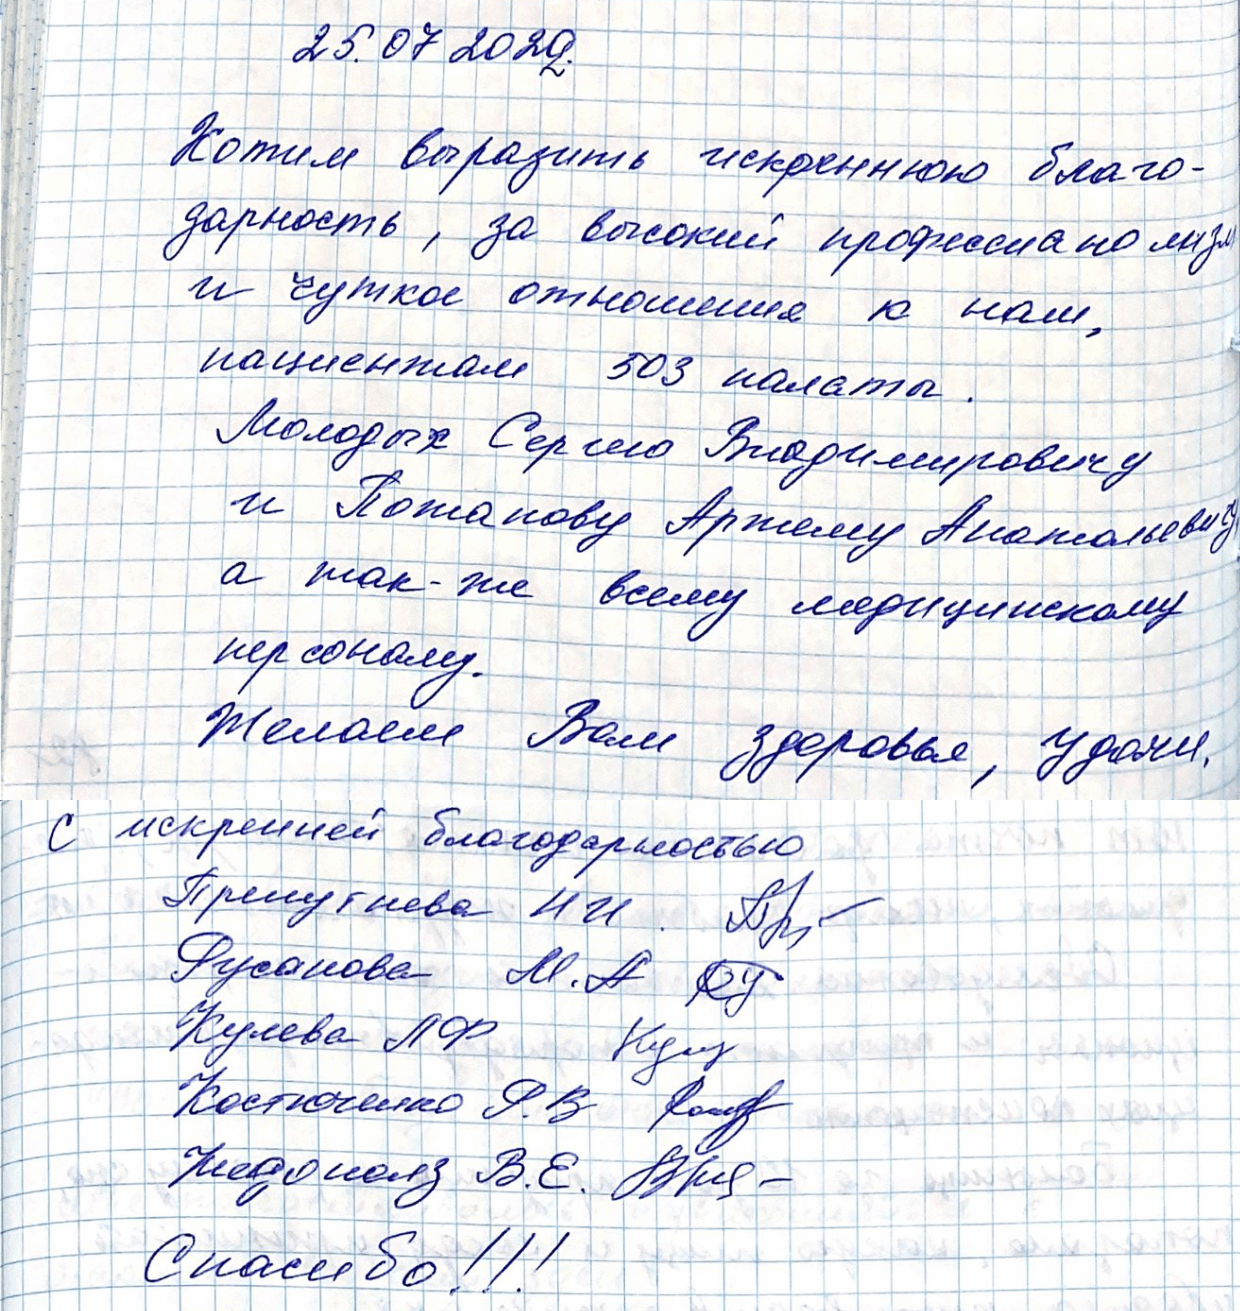 25.07 202
Хотим выразить искреннюю благо-
дарность, за высокий профессианолизм
и чуткое отношения к нам,
пациентам 503 палаты.
Молодых Сергею Владимировичу
и Потапову Артему Анатольевичу
а так-же всему медицинскому
персоналу.
Желаем Вам здоровья, удачи.
С искренней благодарностью
Н И.
Русанова М.А
Кулева Л Ф
Костюченко Р.В
В.Е.
Спасибо!!!